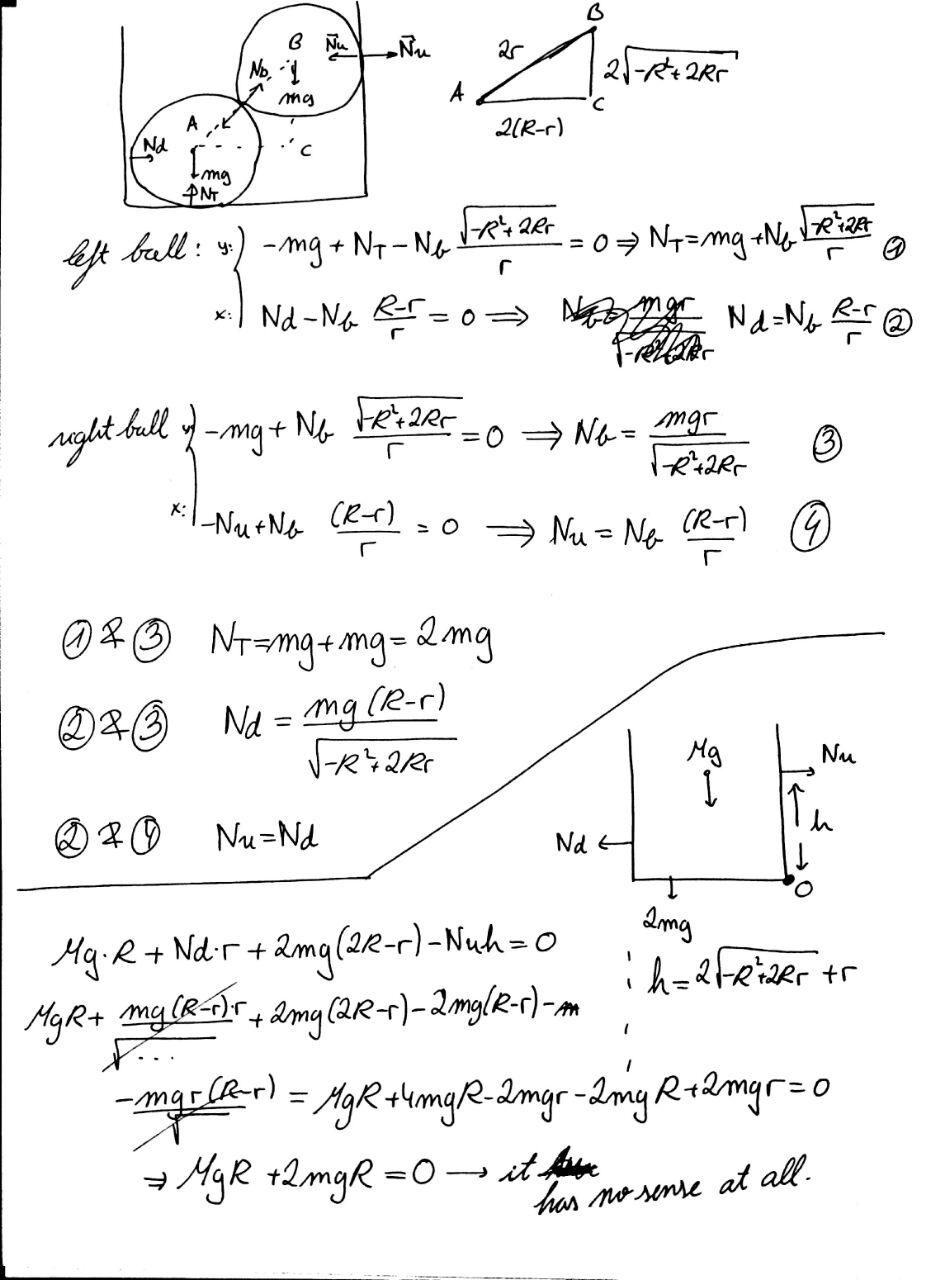 B N⃗u N⃗u
Nb
mg
A
Nd C
mg
NT
B
2r 2√-R²+2Rr
A C
2(R-r)
left ball: y: -mg + NT - Nb √-R²+2Rr / r = 0 ⇒ NT = mg + Nb √-R²+2Rr / r ①
x: Nd - Nb R-r / r = 0 ⇒ Nd = Nb R-r / r ②
right ball y: -mg + Nb √-R²+2Rr / r = 0 ⇒ Nb = mgr / √-R²+2Rr ③
x: -Nu + Nb (R-r) / r = 0 ⇒ Nu = Nb (R-r) / r ④
① & ③ NT = mg + mg = 2mg
② & ③ Nd = mg (R-r) / √-R²+2Rr
② & ④ Nu = Nd
Mg Nu
h
Nd
O
2mg
h = 2√-R²+2Rr + r
Mg·R + Nd·r + 2mg(2R-r) - Nuh = 0
MgR + mg(R-r)·r / √... + 2mg(2R-r) - 2mg(R-r) -
- mgr(R-r) / √ = MgR + 4mgR - 2mgr - 2mgR + 2mgr = 0
⇒ MgR + 2mgR = 0 → it
has no sense at all.